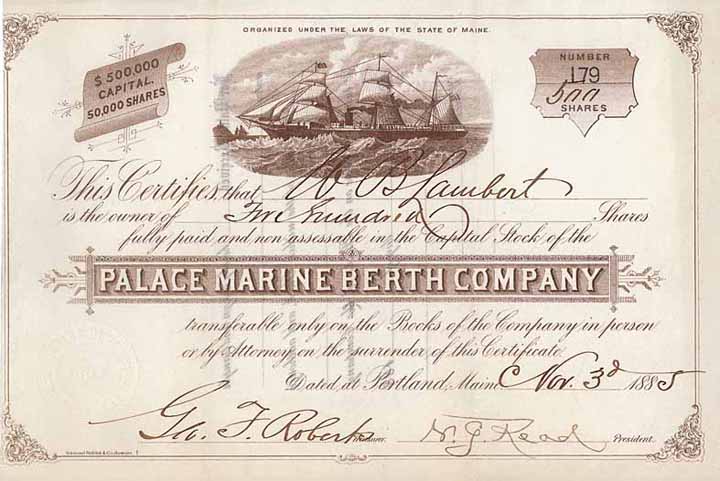 ORGANIZED UNDER THE LAWS OF THE STATE OF MAINE.
$500,000
CAPITAL.
50,000 SHARES
NUMBER
179
500
SHARES
This Certifies, that W B Lambert
is the owner of Five hundred Shares
fully paid and non assessable in the Capital Stock of the
PALACE MARINE BERTH COMPANY
transferable only on the Books of the Company in person
or by Attorney on the surrender of this Certificate.
Dated at Portland, Maine Nov. 3d 1885
Geo. F. Roberts Treasurer. N. J. Read President.